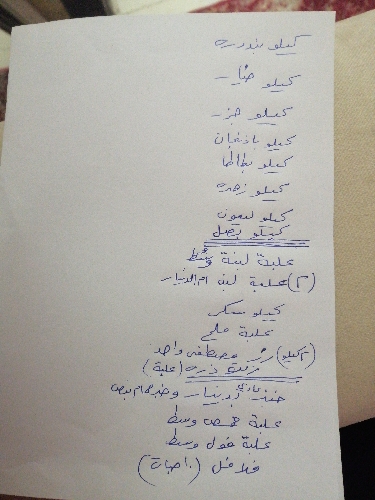 كيلو بندوره
كيلو خيار
كيلو جزر
كيلو باذنجان
كيلو بطاطا
كيلو زهره
كيلو ليمون
كيلو بصل
علبة لبنة وسط
(٢) علبة لبن ام الدينار
كيلو سكر
علبة ملح
(٢ كيلو) رز مصطفى واحد
زيت ذره (علبة)
خبز عادي بدينار و
علبة حمص وسط
علبة فول وسط
فلافل (١٠ حبات)